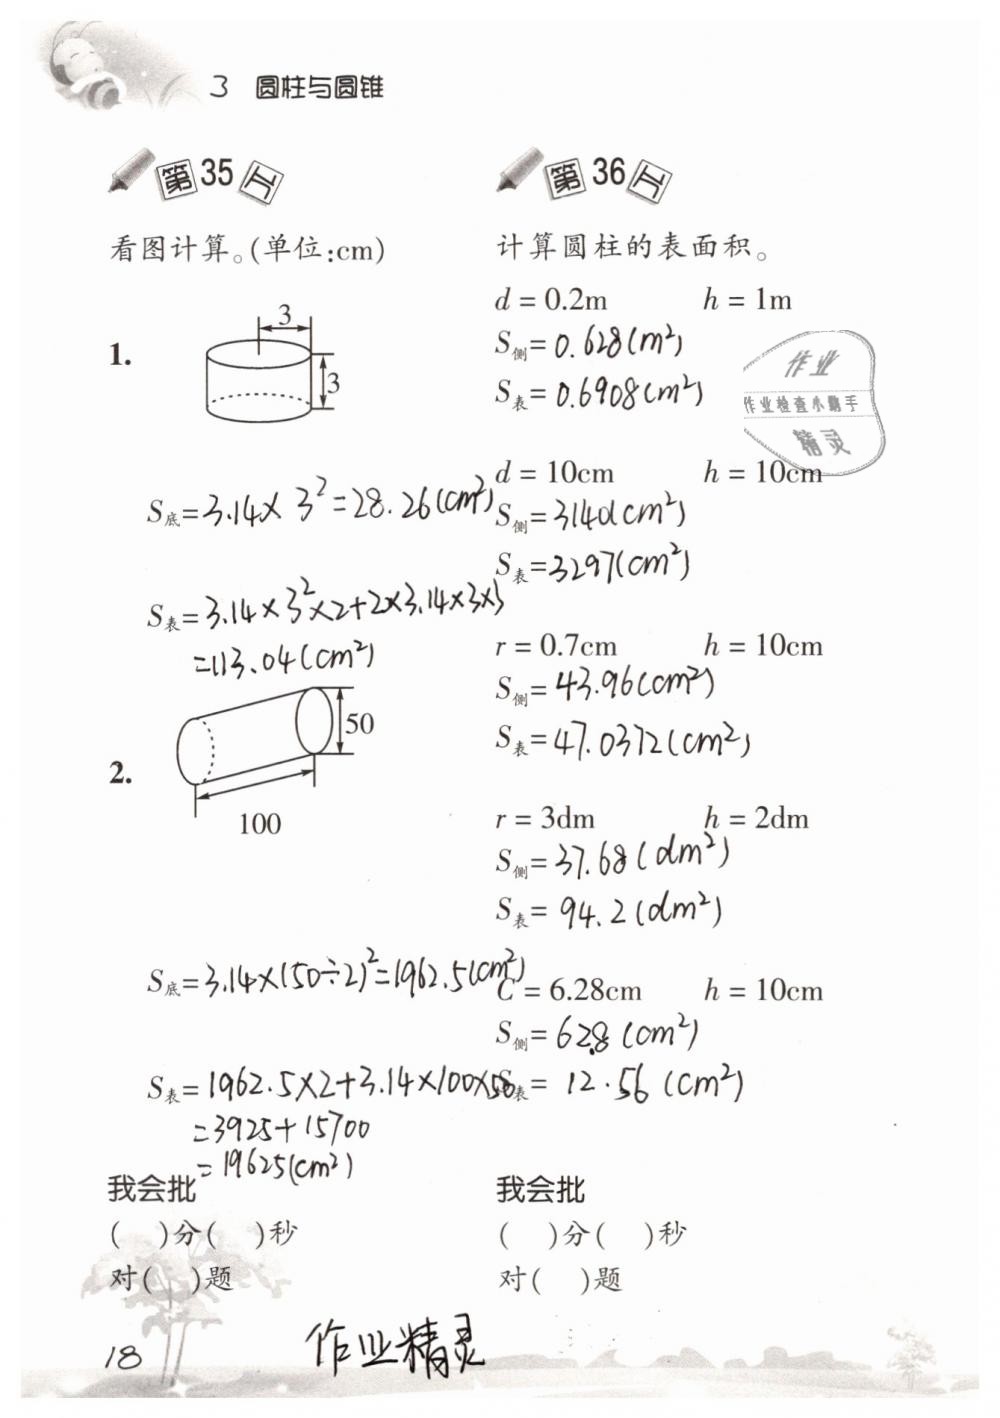 3 圆柱与圆锥
第35天
看图计算。(单位:cm)
1.
3
3
S底=3.14×3²=28.26(cm²)
S表=3.14×3²×2+2×3.14×3×3
=113.04(cm²)
2.
50
100
S底=3.14×(50÷2)²=1962.5(cm²)
S表=1962.5×2+3.14×100×50
=3925+15700
=19625(cm²)
我会批
( )分( )秒
对( )题
第36天
计算圆柱的表面积。
d = 0.2m h = 1m
S侧=0.628(m²)
S表=0.6908(m²)
作业
作业检查小助手
精灵
d = 10cm h = 10cm
S侧=3140(cm²)
S表=3297(cm²)
r = 0.7cm h = 10cm
S侧=43.96(cm²)
S表=47.0372(cm²)
r = 3dm h = 2dm
S侧=37.68(dm²)
S表=94.2(dm²)
C = 6.28cm h = 10cm
S侧=62.8(cm²)
S表=12.56(cm²)
我会批
( )分( )秒
对( )题
18
作业精灵